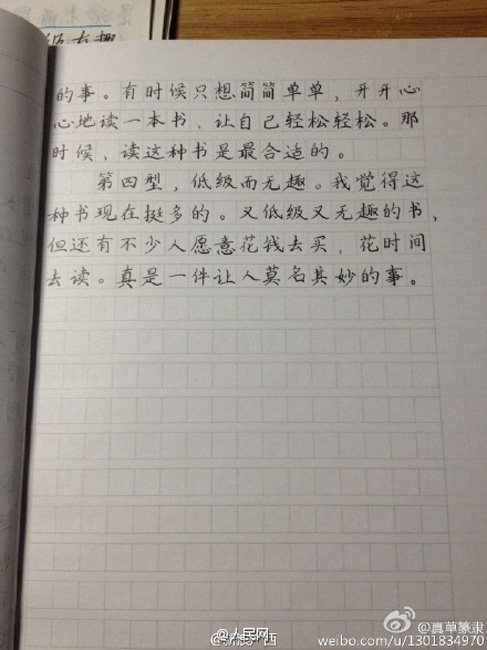 级有趣
的事。有时候只想简简单单，开开心
心地读一本书，让自己轻松轻松。那
时候，读这种书是最合适的。
第四型，低级而无趣。我觉得这
种书现在挺多的。又低级又无趣的书，
但还有不少人愿意花钱去买，花时间
去读。真是一件让人莫名其妙的事。
@人民网
@真草篆隶
weibo.com/u/1301834970